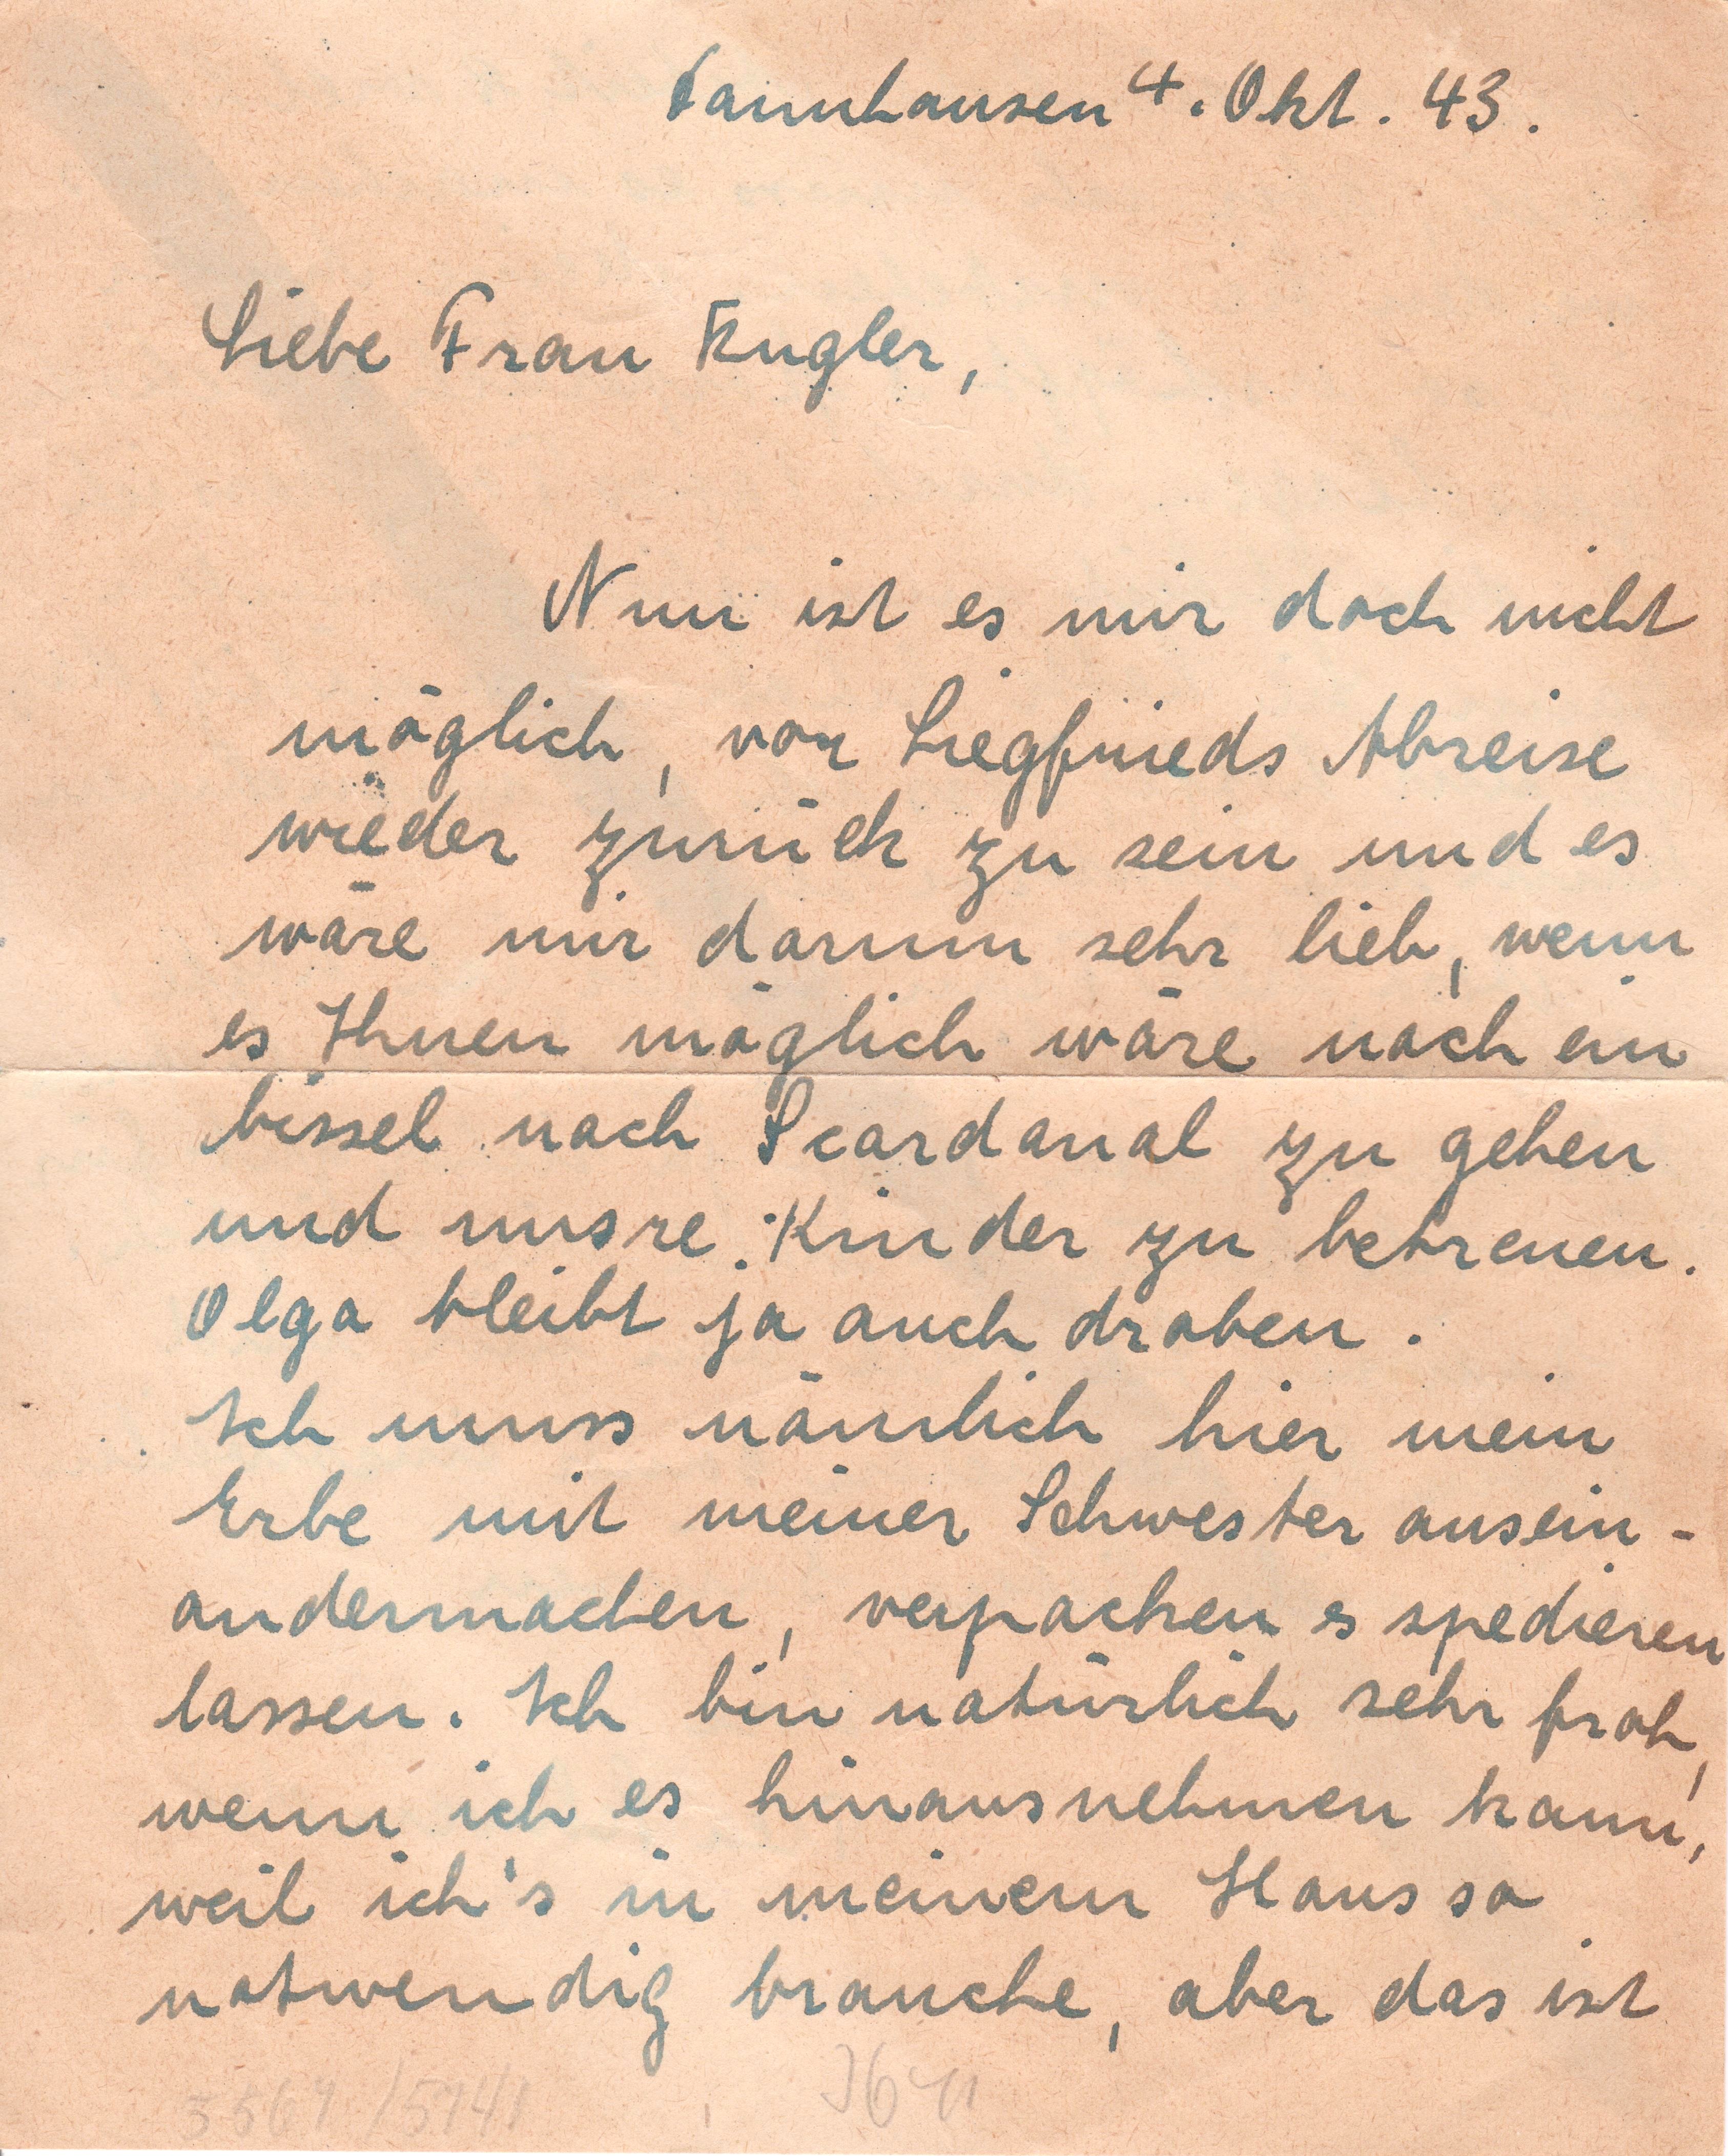 Tannhausen 4. Okt. 43.
Liebe Frau Kugler,
Nun ist es mir doch nicht
möglich, vor Siegfrieds Abreise
wieder zurück zu sein und es
wäre mir darum sehr lieb, wenn
es Ihnen möglich wäre noch ein
bissel nach Scardanal zu gehen
und unsre Kinder zu betreuen.
Olga bleibt ja auch droben.
Ich muss nämlich hier mein
Erbe mit meiner Schwester ausein-
andermachen, verpacken & spedieren
lassen. Ich bin natürlich sehr froh,
wenn ich es hinausnehmen kann,
weil ich's in meinem Haus so
notwendig brauche, aber das ist